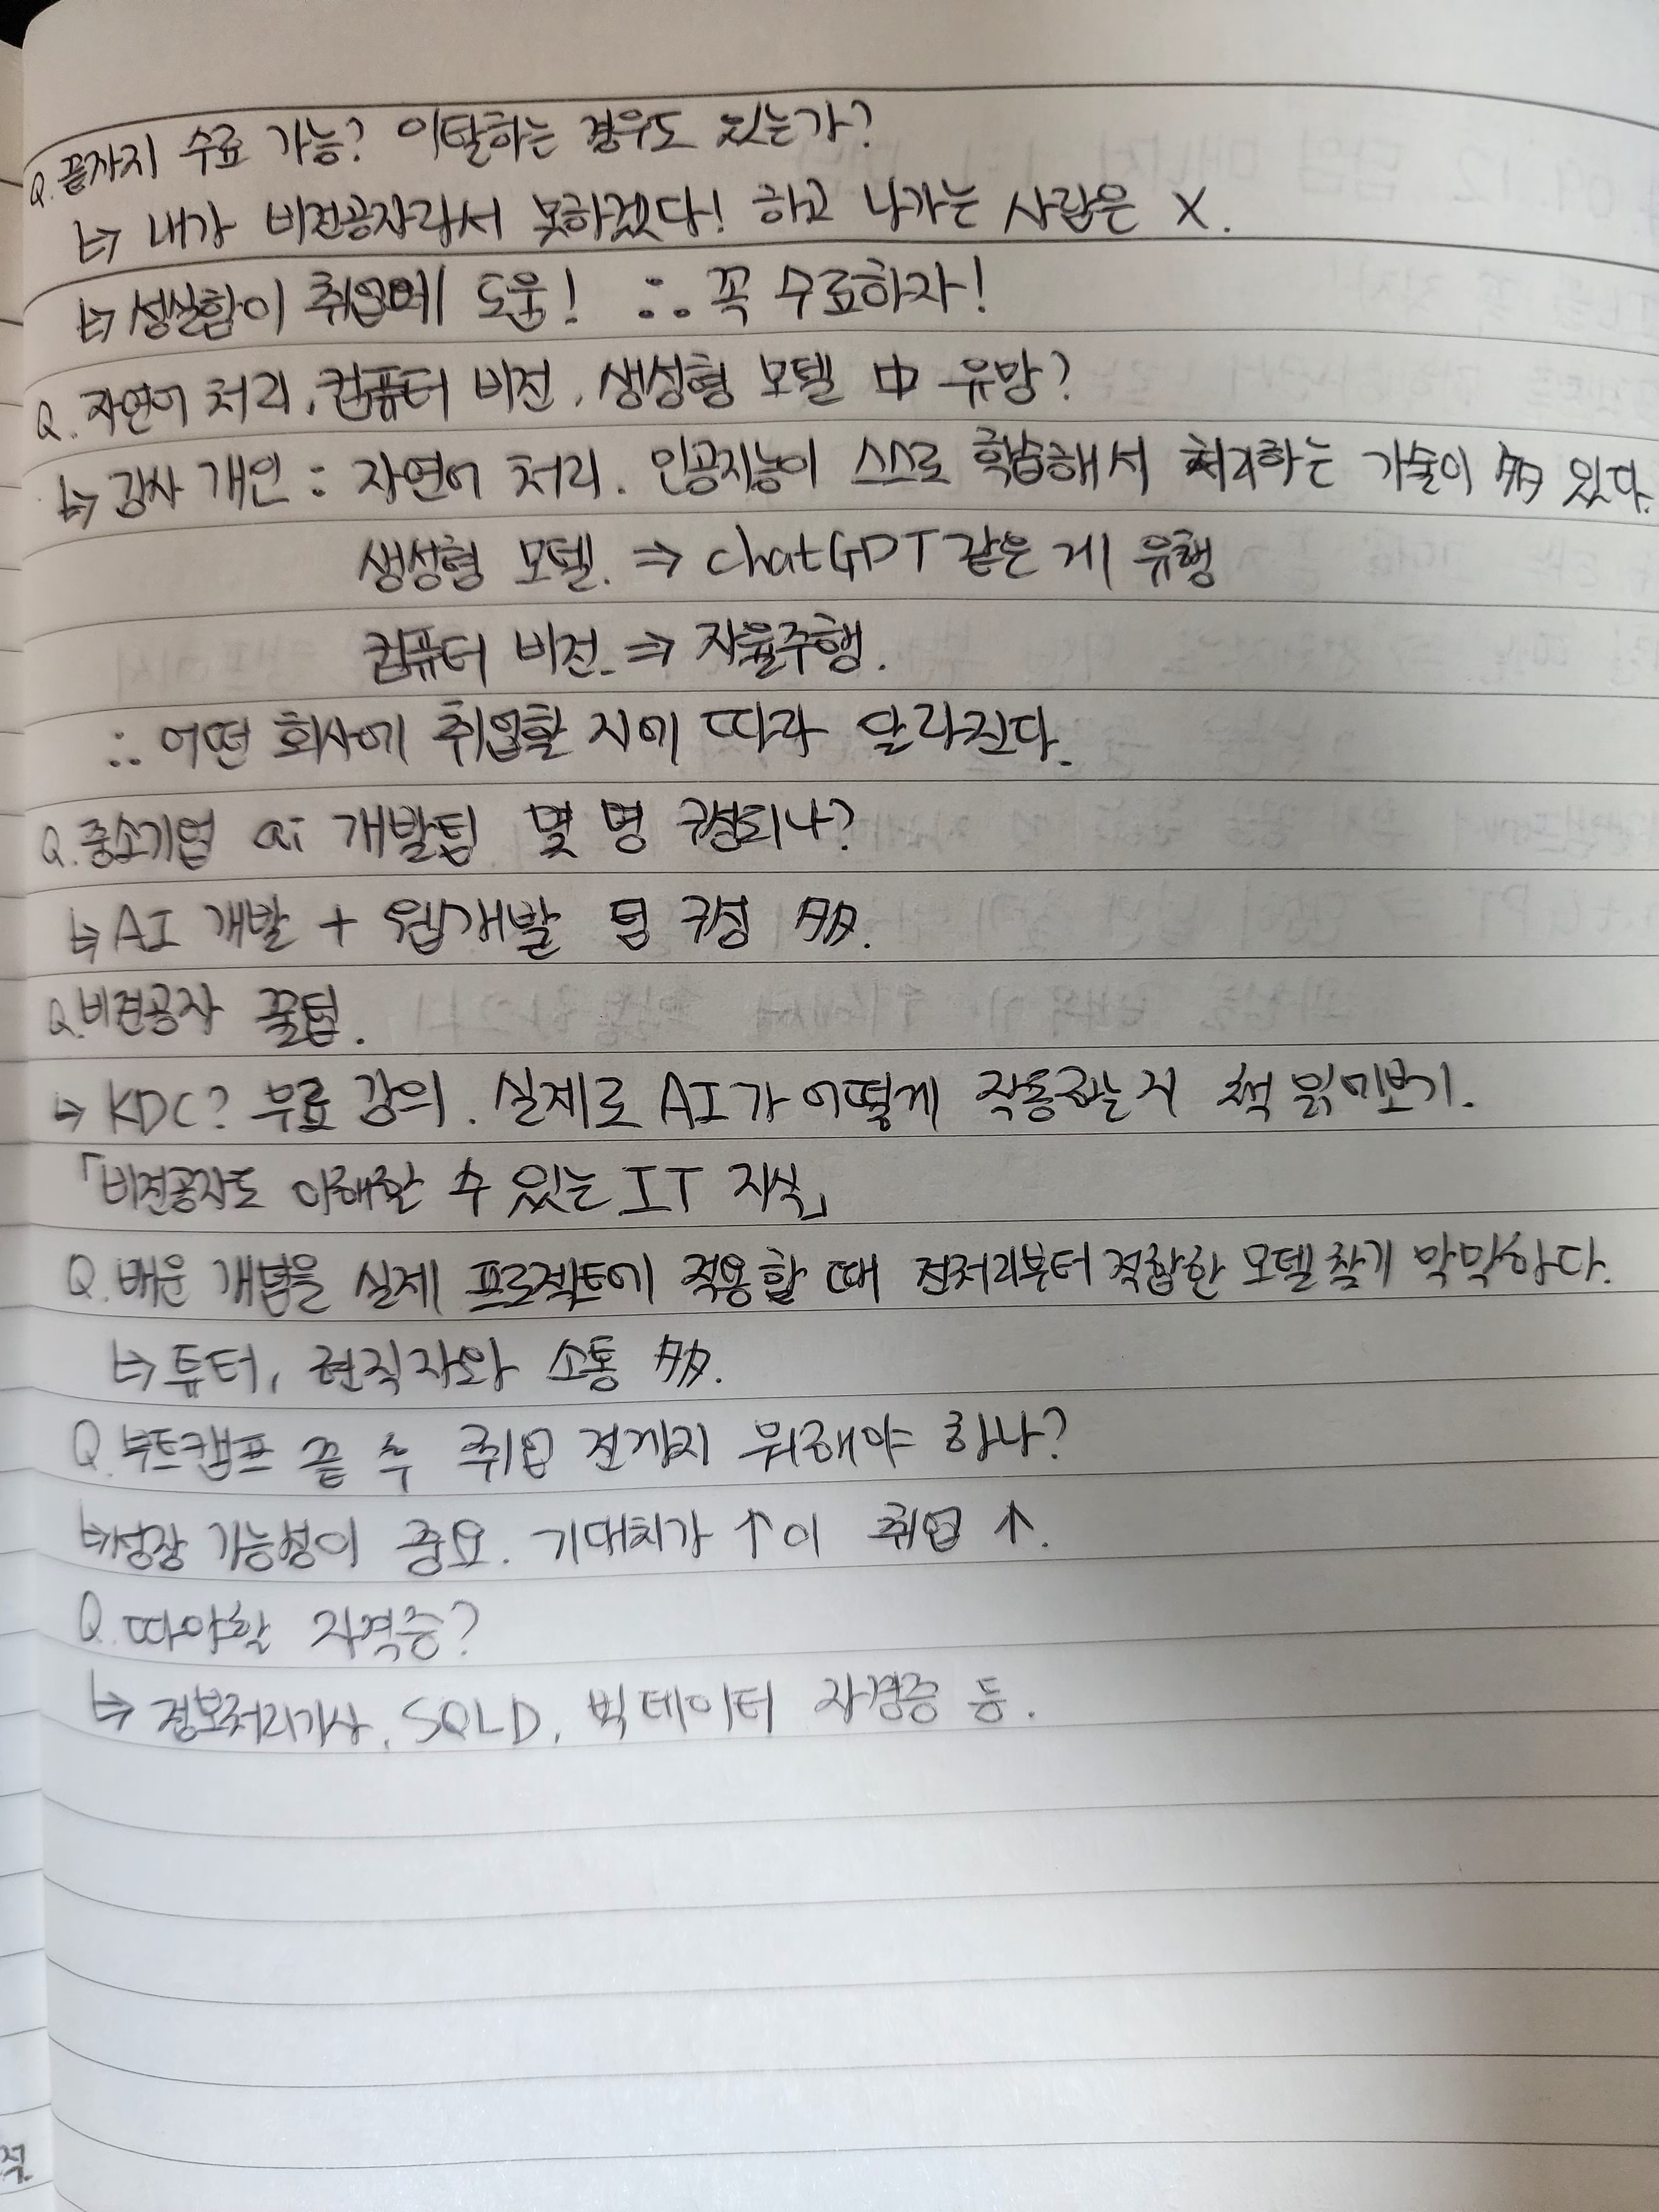 Q. 끝까지 수료 가능? 이탈하는 경우도 있는가?
↳ 내가 비전공자라서 못하겠다! 하고 나가는 사람은 X.
↳ 성실함이 취업에 도움! ∴ 꼭 수료하자!
Q. 자연어 처리, 컴퓨터 비전, 생성형 모델 中 유망?
↳ 강사 개인 : 자연어 처리. 인공지능이 스스로 학습해서 처리하는 기술이 多 있다.
생성형 모델. ⇒ chatGPT 같은 게 유행
컴퓨터 비전. ⇒ 자율주행.
∴ 어떤 회사에 취업할 지에 따라 달라진다.
Q. 중소기업 ai 개발팀 몇 명 구성되나?
↳ AI 개발 + 웹개발 팀 구성 多.
Q. 비전공자 꿀팁.
↳ KDC? 무료 강의. 실제로 AI가 어떻게 작동하는지 책 읽어보기.
「비전공자도 이해할 수 있는 IT 지식」
Q. 배운 개념을 실제 프로젝트에 적용할 때 전처리부터 적합한 모델 찾기 막막하다.
↳ 튜터, 현직자와 소통 多.
Q. 부트캠프 끝 후 취업 전까지 뭐해야 하나?
↳ 성장 가능성이 중요. 기대치가 ↑이 취업 ↑.
Q. 따야할 자격증?
↳ 정보처리기사, SQLD, 빅데이터 자격증 등.